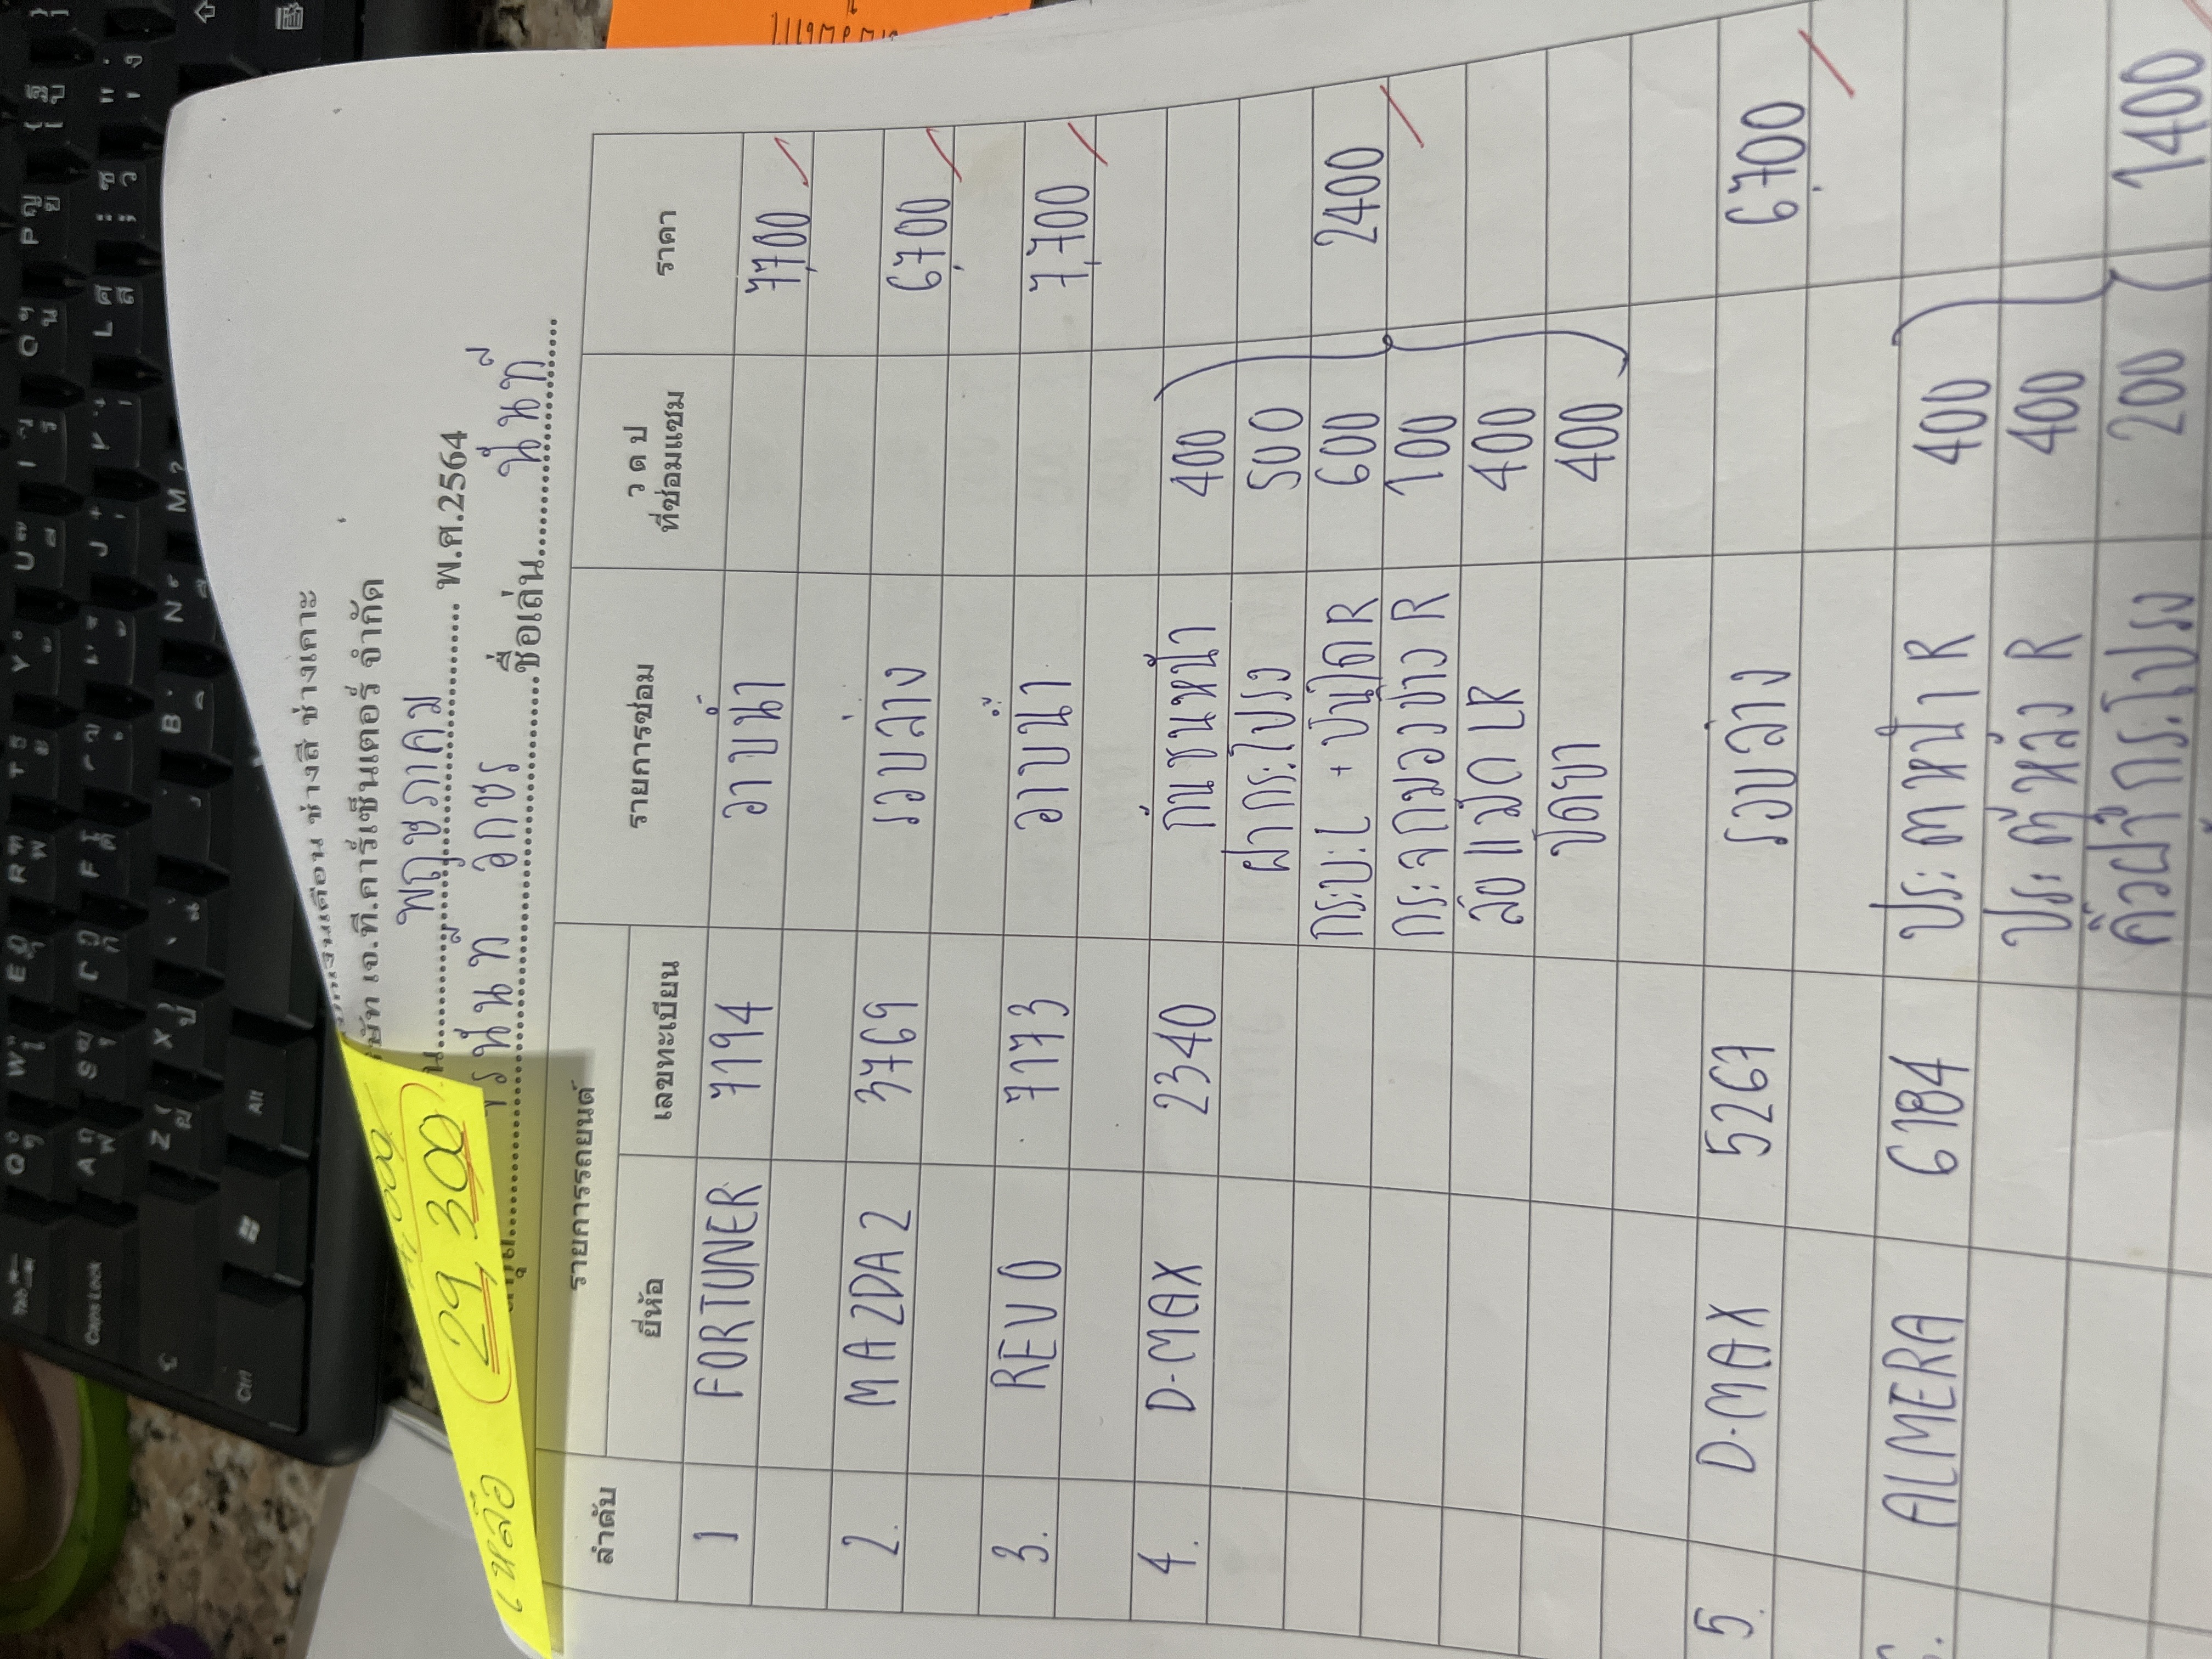 เงินเดือน ช่างสี ช่างเคาะ
บริษัท เจ.ที.คาร์เซ็นเตอร์ จำกัด
พฤษภาคม พ.ศ.2564
อักษร ชื่อเล่น นันท์
เหลือ 29,300
ลำดับ รายการรถยนต์ รายการซ่อม ว ด ป ที่ซ่อมแซม ราคา
ยี่ห้อ เลขทะเบียน
1 FORTUNER 7194 อาบน้ำ 7,700
2. MAZDA 2 3769 รอบล่าง 6,700
3. REVO 7173 อาบน้ำ 7,700
4. D-MAX 2340 กันชนหน้า 400
ฝากระโปรง 500
กระบะ L + บันได R 600 2400
กระจกมองข้าง R 100
ล้อแม็ก LR 400
ขัดยา 400
5. D-MAX 5267 รอบล่าง 6,700
ALMERA 6184 ประตูหน้า R 400
ประตูหลัง R 400
คิ้วฝากระโปรง 200 1400